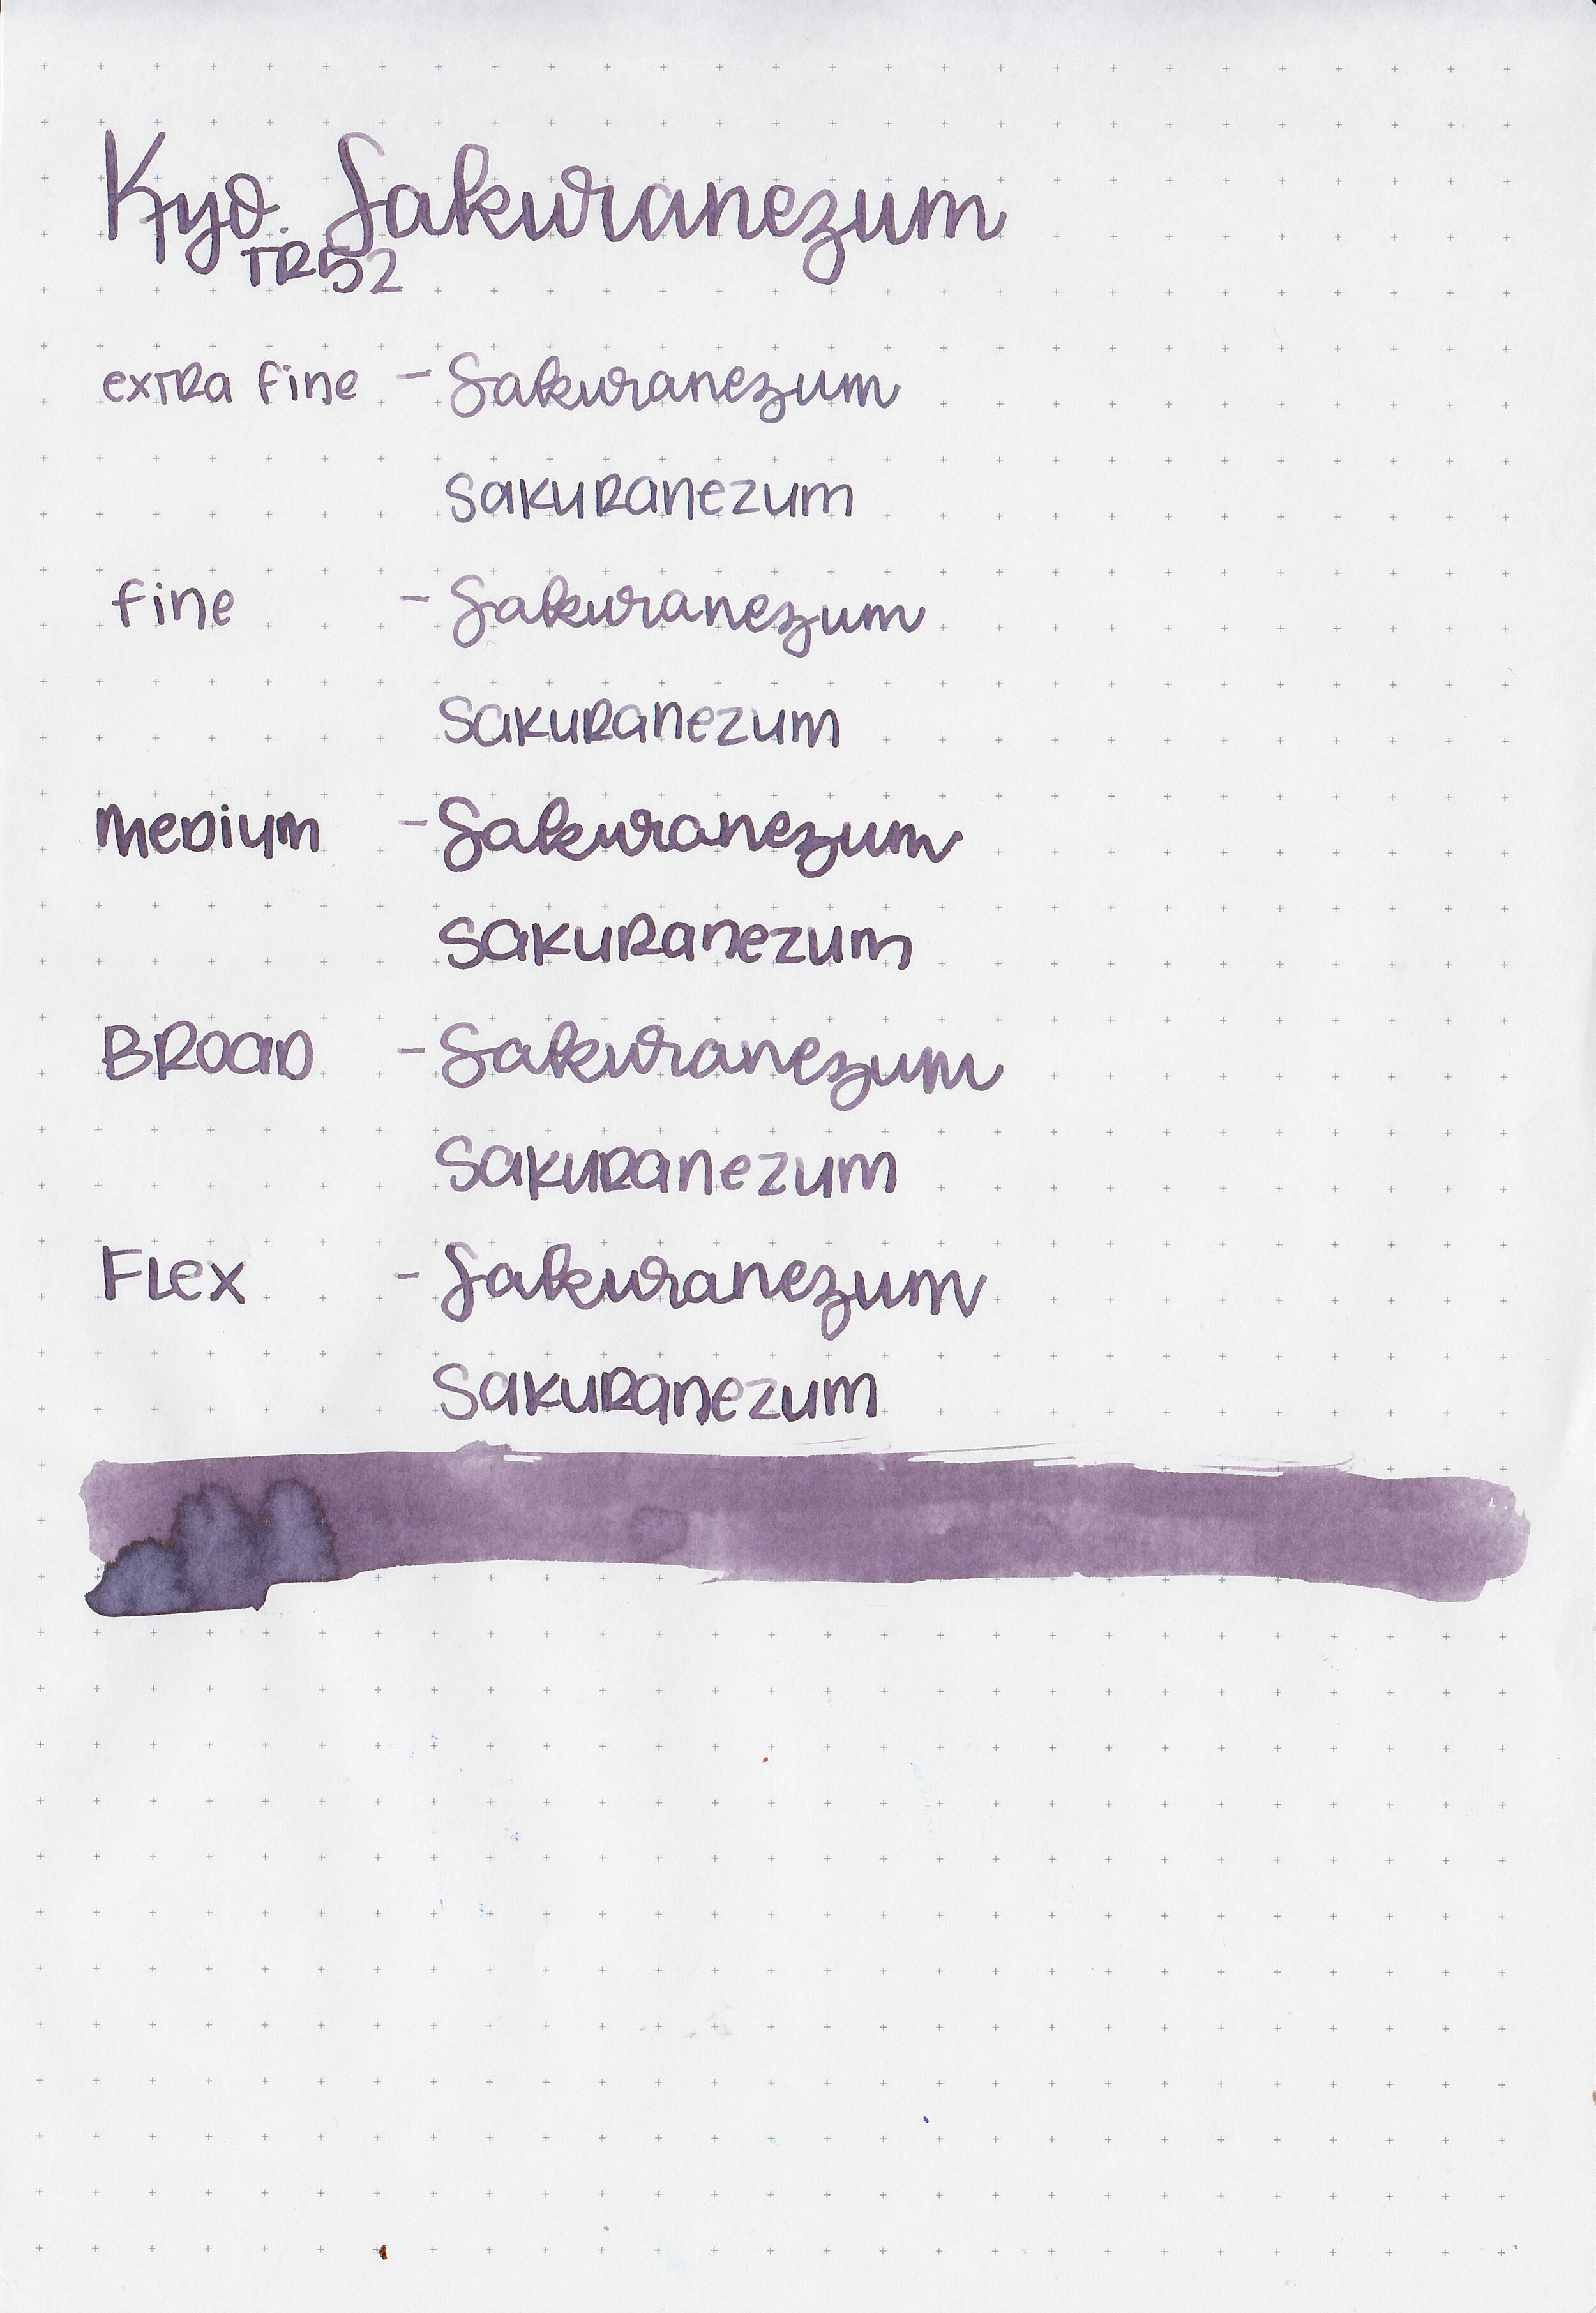 Kyo. Sakuranezum
TR52
extra fine - Sakuranezum
Sakuranezum
fine - Sakuranezum
Sakuranezum
Medium - Sakuranezum
Sakuranezum
Broad - Sakuranezum
Sakuranezum
Flex - Sakuranezum
Sakuranezum